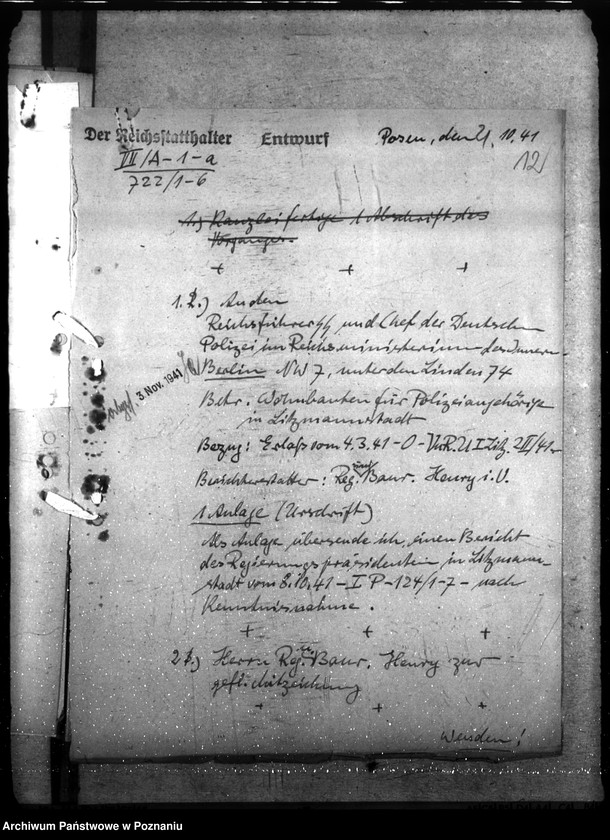 Der Reichsstatthalter Entwurf Posen, den 21. 10. 41
VII/A-1-a
722/1-6
12
1.) Kanzlei fertige 1 Abschrift des
Vorganges.
+ + +
1.2.) An den
Reichsführer SS und Chef der Deutschen
Polizei im Reichsministerium des Innern
Berlin NW 7, unter den Linden 74
3. Nov. 1941
Betr. Wohnbauten für Polizeiangehörige
in Litzmannstadt
Bezug: Erlaß vom 4.3.41 -O-VuR. U I Litz. 2II/41-
Berichterstatter: Reg. und Baur. Henry i.V.
1 Anlage (Urschrift)
Als Anlage übersende ich einen Bericht
des Regierungspräsidenten in Litzmann-
stadt vom 8.10.41 - I P-124/1-7 - nach
Kenntnisnahme.
+ + +
2.) Herrn Reg. u. Baur. Henry zur
gefl. Mitzeichnung
+ + +
Wenden!
Archiwum Państwowe w Poznaniu